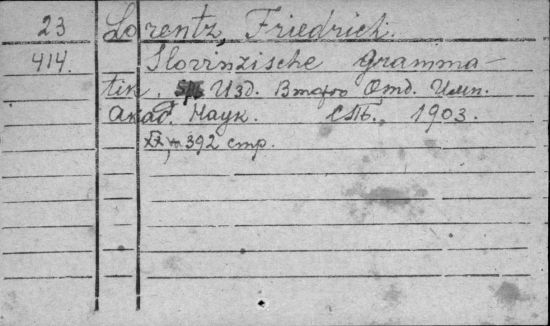 23 Lorentz, Friedrich.
414. Slovinzische Gramma-
tik. Изд. Втор. Отд. Имп.
Акад. Наук. СПб., 1903.
XX, 392 стр.